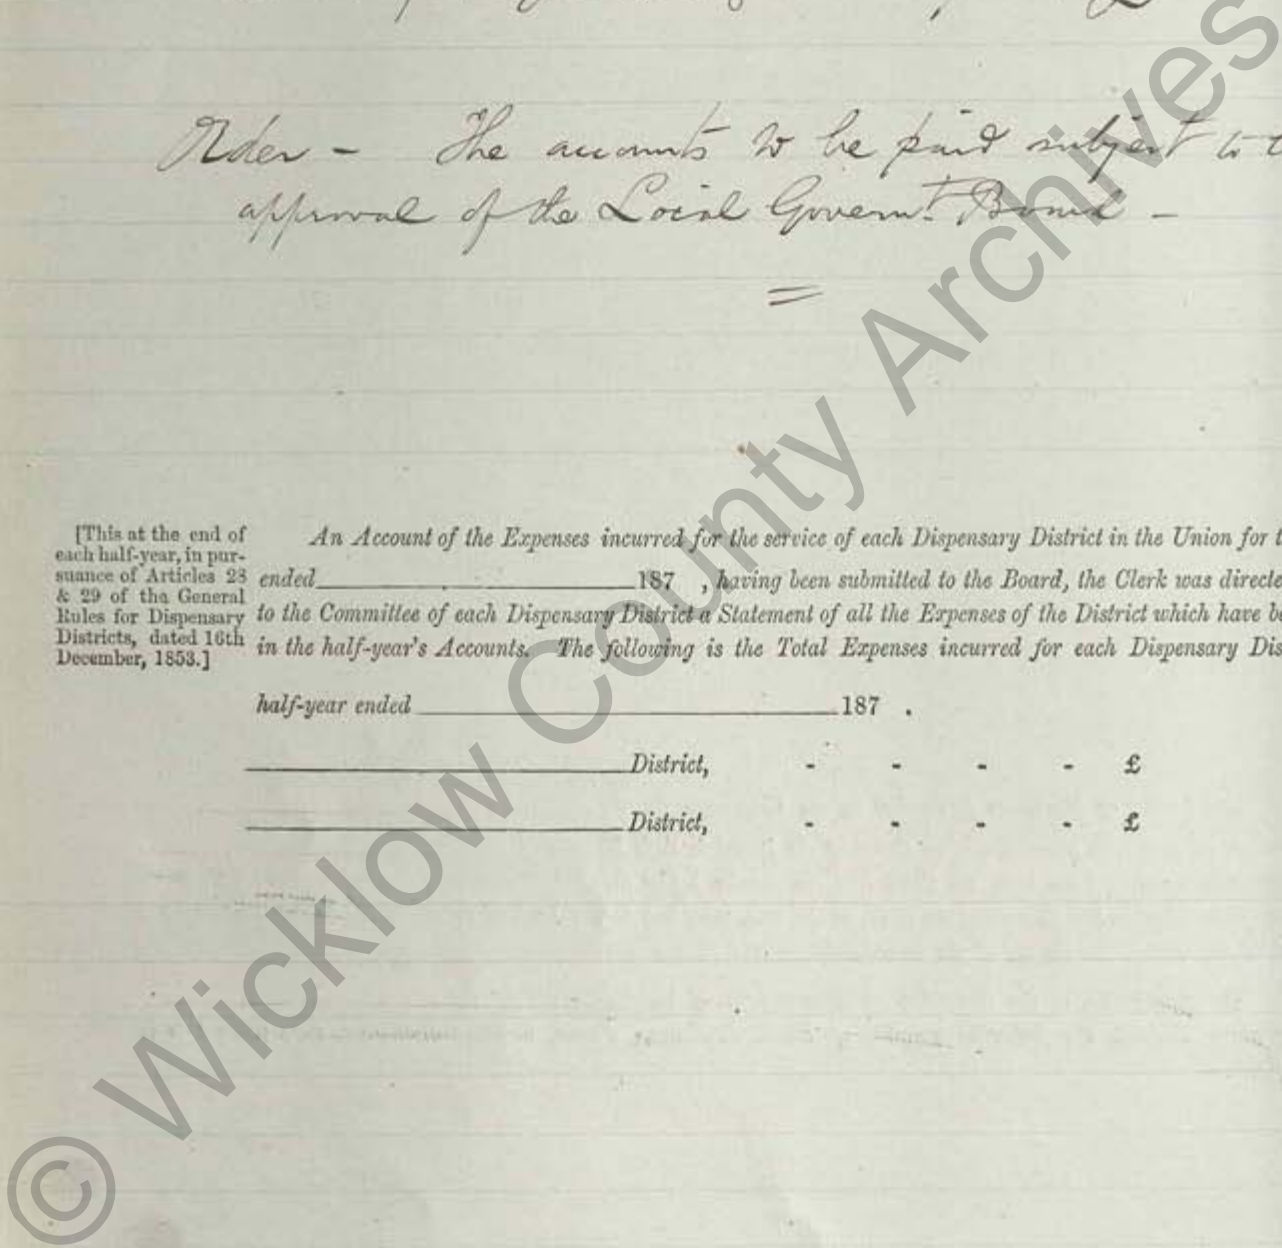 Order - The accounts to be paid subject to
approval of the Local Governt. Board -
[This at the end of
each half-year, in pur-
suance of Articles 23
& 29 of the General
Rules for Dispensary
Districts, dated 16th
December, 1853.]
An Account of the Expenses incurred for the service of each Dispensary District in the Union for
ended 187 , having been submitted to the Board, the Clerk was directe
to the Committee of each Dispensary District a Statement of all the Expenses of the District which have be
in the half-year's Accounts. The following is the Total Expenses incurred for each Dispensary Dis
half-year ended 187 .
District, - - - - £
District, - - - - £
© Wicklow County Archives